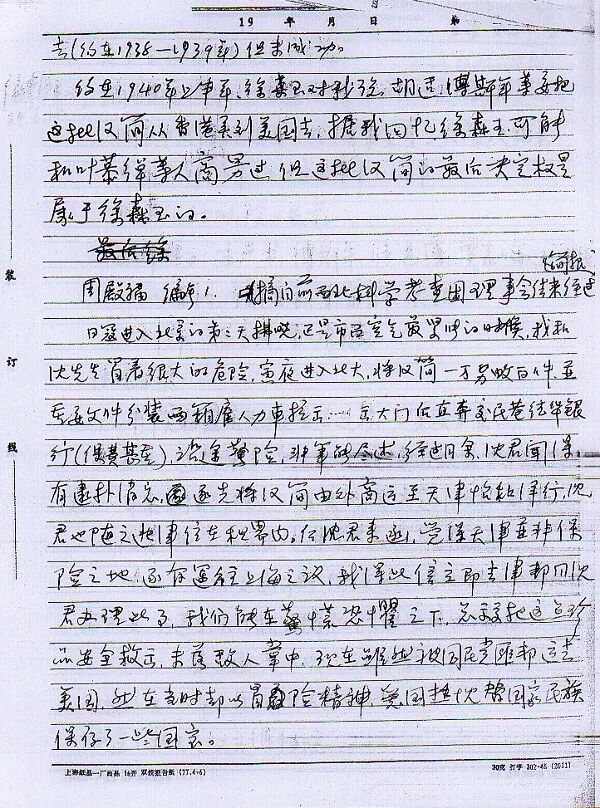 19 年 月 日 第
去(约在1938—1939年)但未成功。
约在1940年上半年,徐森玉对我说,胡适、傅斯年等要把
这批汉简从香港弄到美国去,据我回忆徐森玉可能
和叶恭绰等人商量过,但这批汉简的最后决定权是
属于徐森玉的。
最后徐
周殿福 编号1. 摘自前西北科学考查团理事会结束经过
日寇进入北平的第三天拂晓,正是市面空气最紧张的时候,我和
沈先生冒着很大的危险,夤夜进入北大,将汉简一万另数百件並
重要文件分装两箱雇人力車拉出 出大门后直奔交民巷 银
行(保费甚至),沿途 险,非笔 述,经过月余,沈君闻
有逮扑消息,逐先将汉简由外商运至天津 津行,沈
君也随之 津住在租界内。后沈君来函,觉得天津並非保
险之地,逐有运往上海之议,我得此信立即去津都同沈
君办理此事,我们 在 惧之下,总算把这些珍
品安全救出,未落敌人掌中,现在雖然被国民党匪邦运去
美国,然在当时却以冒险精神, 国家民族
保存了一些国宝。
装
订
线
上海纸品一厂出品 16开 双线报告纸 (77.4-6)
30克 打字 302-45 (2011)